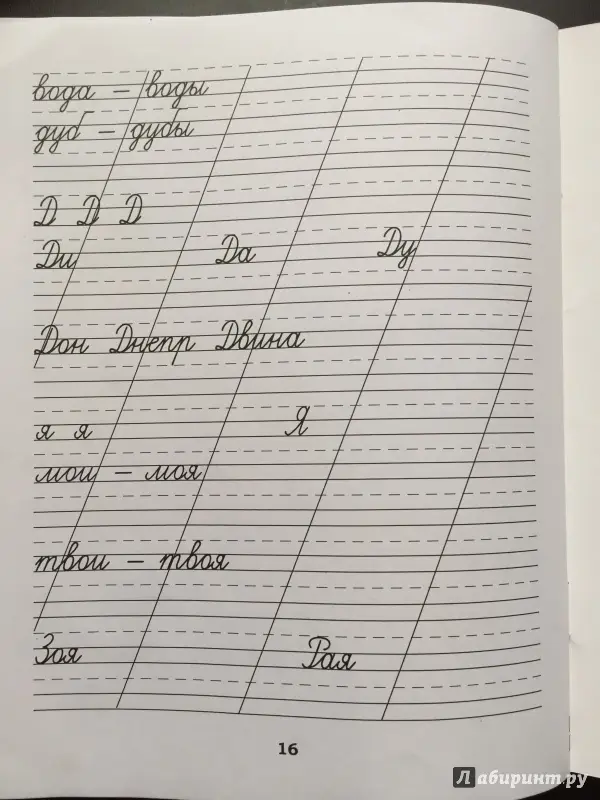 вода – воды
дуб – дубы
Д Д Д
Ди Да Ду
Дон Днепр Двина
я я Я
мои – моя
твои – твоя
Зоя Рая
16
Лабиринт.ру